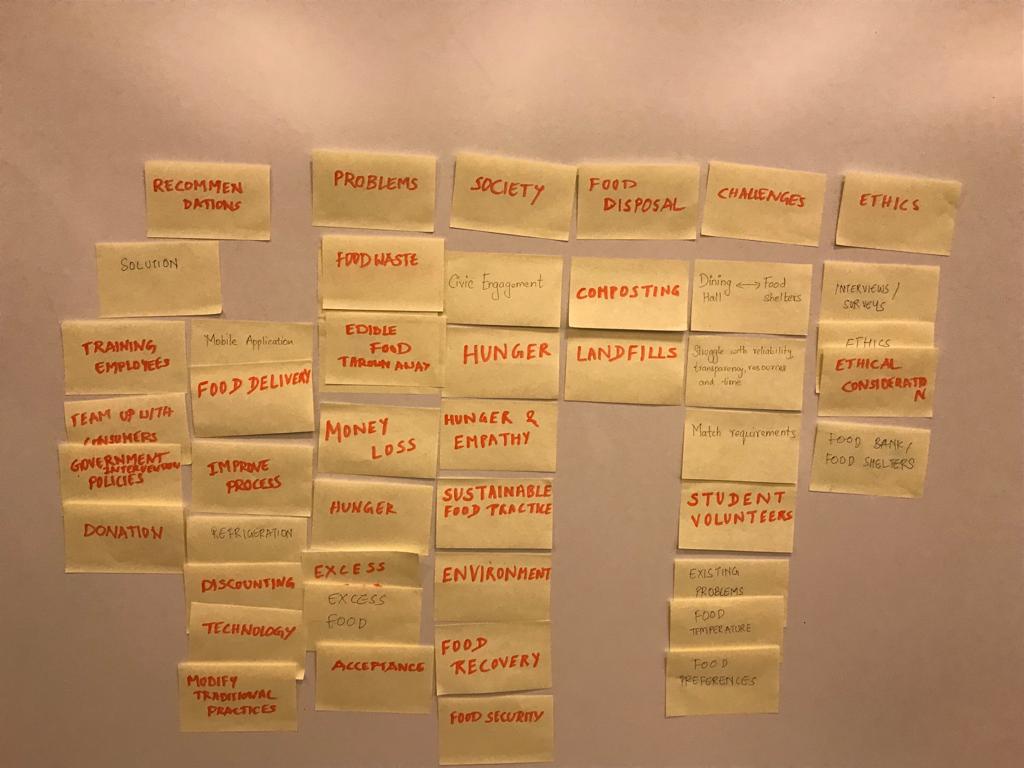 RECOMMEN
DATIONS
SOLUTION
TRAINING
EMPLOYEES
TEAM UP WITH
CONSUMERS
GOVERNMENT
INTERVENTION
POLICIES
DONATION
Mobile Application
FOOD DELIVERY
IMPROVE
PROCESS
REFRIGERATION
DISCOUNTING
TECHNOLOGY
MODIFY
TRADITIONAL
PRACTICES
PROBLEMS
FOOD WASTE
EDIBLE
FOOD
THROWN AWAY
MONEY
LOSS
HUNGER
EXCESS
EXCESS
FOOD
ACCEPTANCE
SOCIETY
Civic Engagement
HUNGER
HUNGER &
EMPATHY
SUSTAINABLE
FOOD PRACTICE
ENVIRONMENT
FOOD
RECOVERY
FOOD SECURITY
FOOD
DISPOSAL
COMPOSTING
LANDFILLS
CHALLENGES
Dining ↔ Food
Hall shelters
Struggle with reliability,
transparency, resources
and time
Match requirements
STUDENT
VOLUNTEERS
EXISTING
PROBLEMS
FOOD
TEMPERATURE
FOOD
PREFERENCES
ETHICS
INTERVIEWS/
SURVEYS
ETHICS
ETHICAL
CONSIDERATIO
N
FOOD BANK/
FOOD SHELTERS